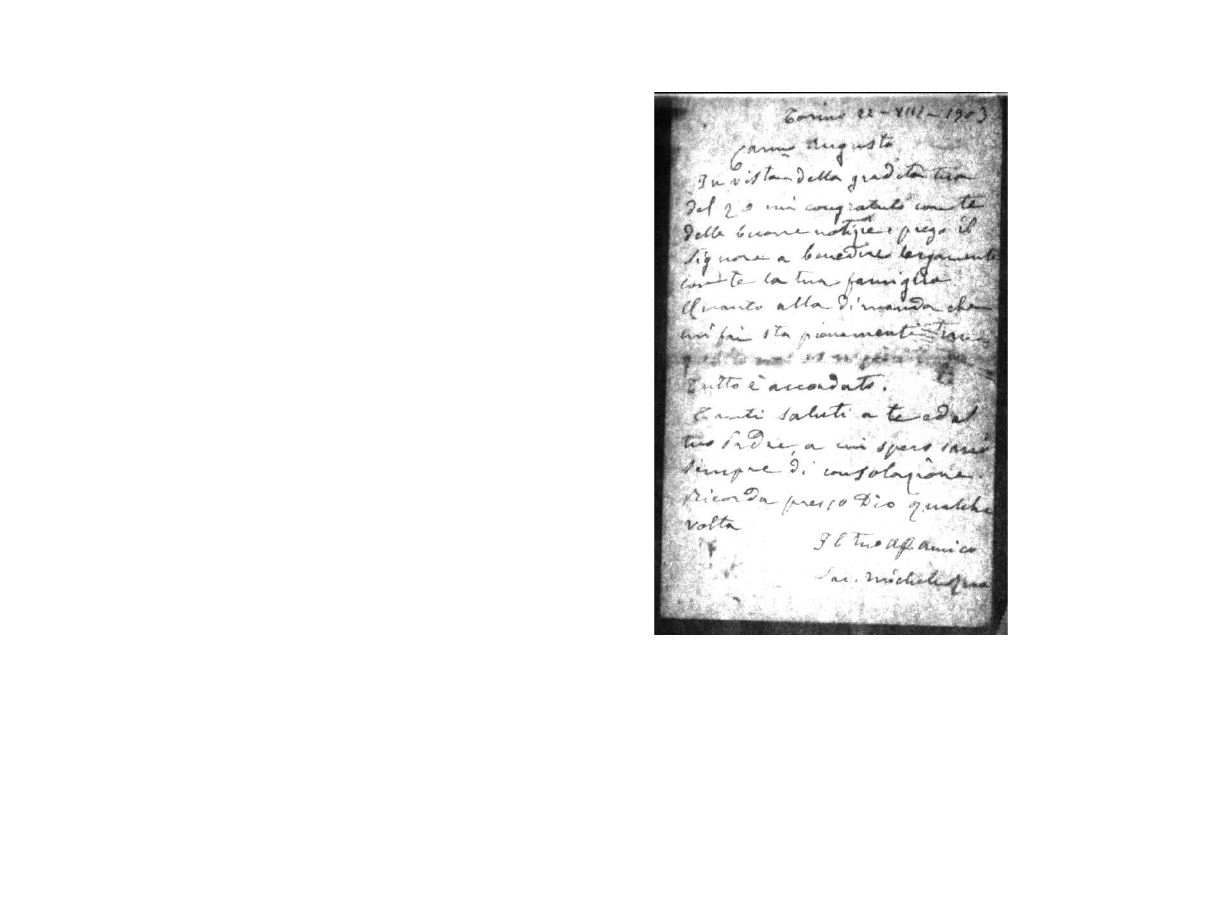 Torino 22-VIII-1903
Carmo Augusto
In vista della gradita tua
del 20 mi congratulo con te
delle buone notizie e prego il
Signore a benedire largamente
con te la tua famiglia.
Quanto alla dimanda che
mi fai sta pienamente
Tutto è accordato.
Tanti saluti a te ed al
tuo Padre, a cui spero sarai
sempre di consolazione.
Ricorda presso Dio qualche
volta
Il tuo aff. amico
Sac. Michele Rua